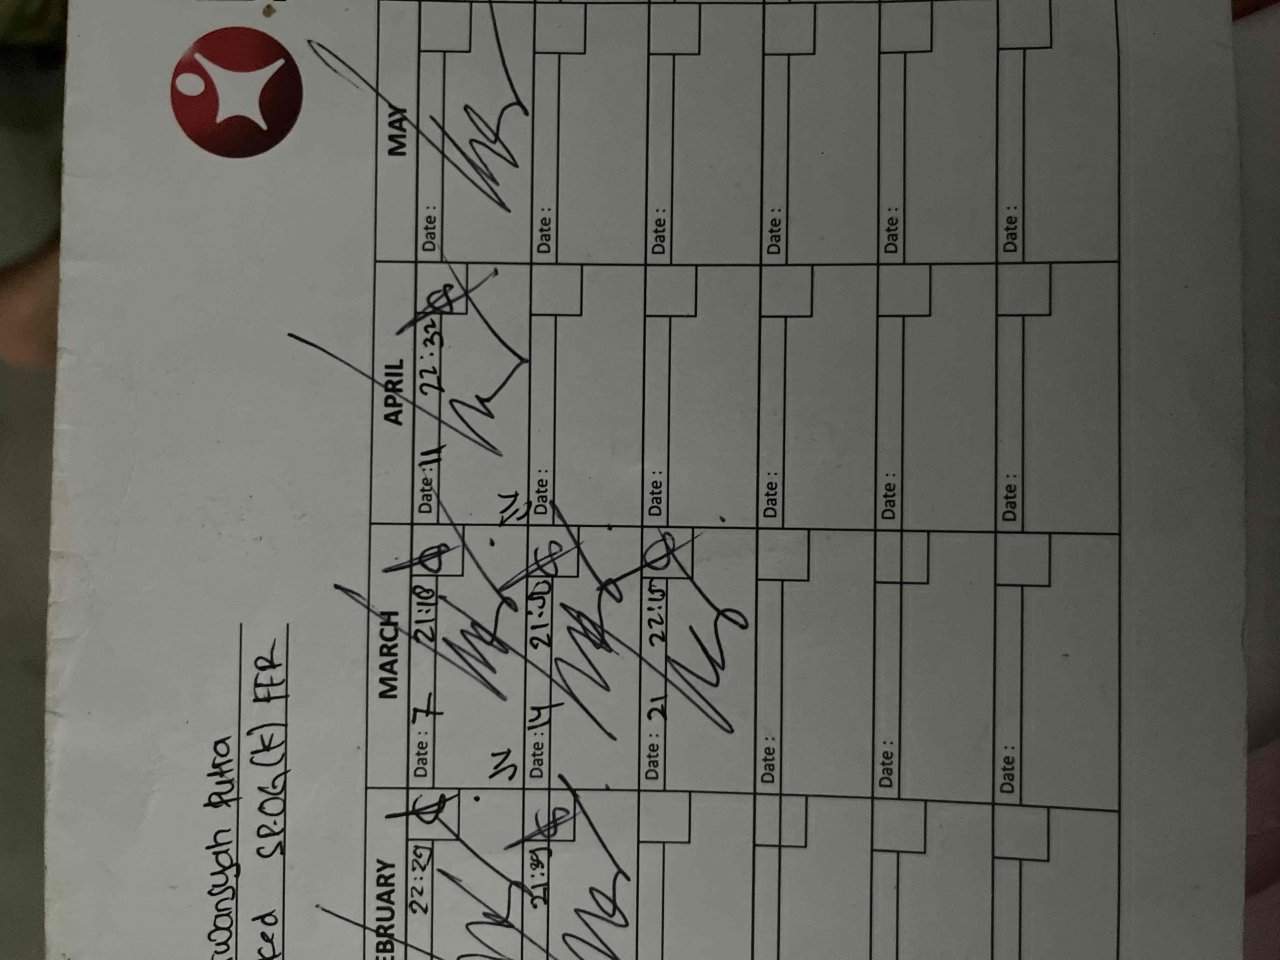 wansyah Putra
ked SP.OG(K) FER
EBRUARY
MARCH
APRIL
MAY
22:29
Date : 7 21:18
Date : 11 22:32
Date :
JV
JV
21:39
Date : 14
Date :
Date :
Date : 21
Date :
Date :
Date :
Date :
Date :
Date :
Date :
Date :
Date :
Date :
Date :